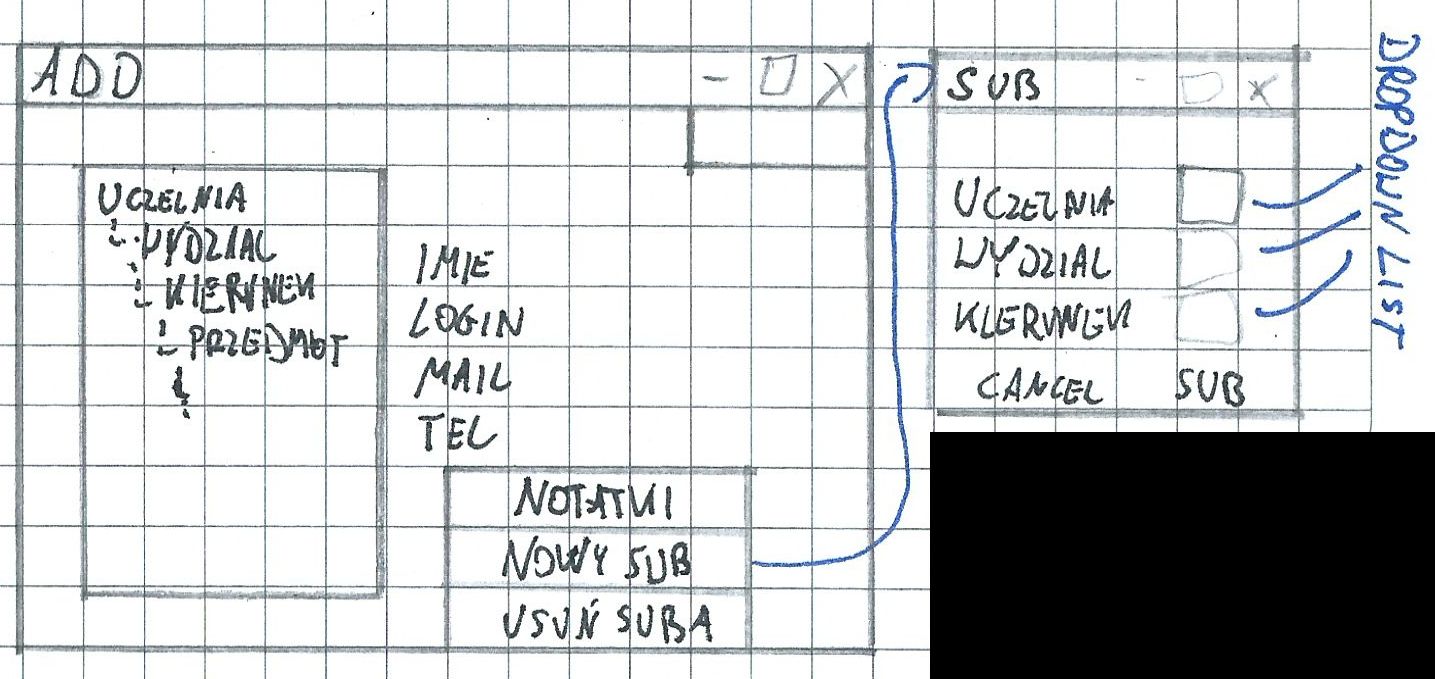 ADD
- X
UCZELNIA
WYDZIAL
KIERUNEK
PRZEDMIOT
IMIE
LOGIN
MAIL
TEL
NOTATKI
NOWY SUB
USUŃ SUBA
SUB - X
UCZELNIA
WYDZIAL
KIERUNEK
CANCEL SUB
DROPDOWN LIST